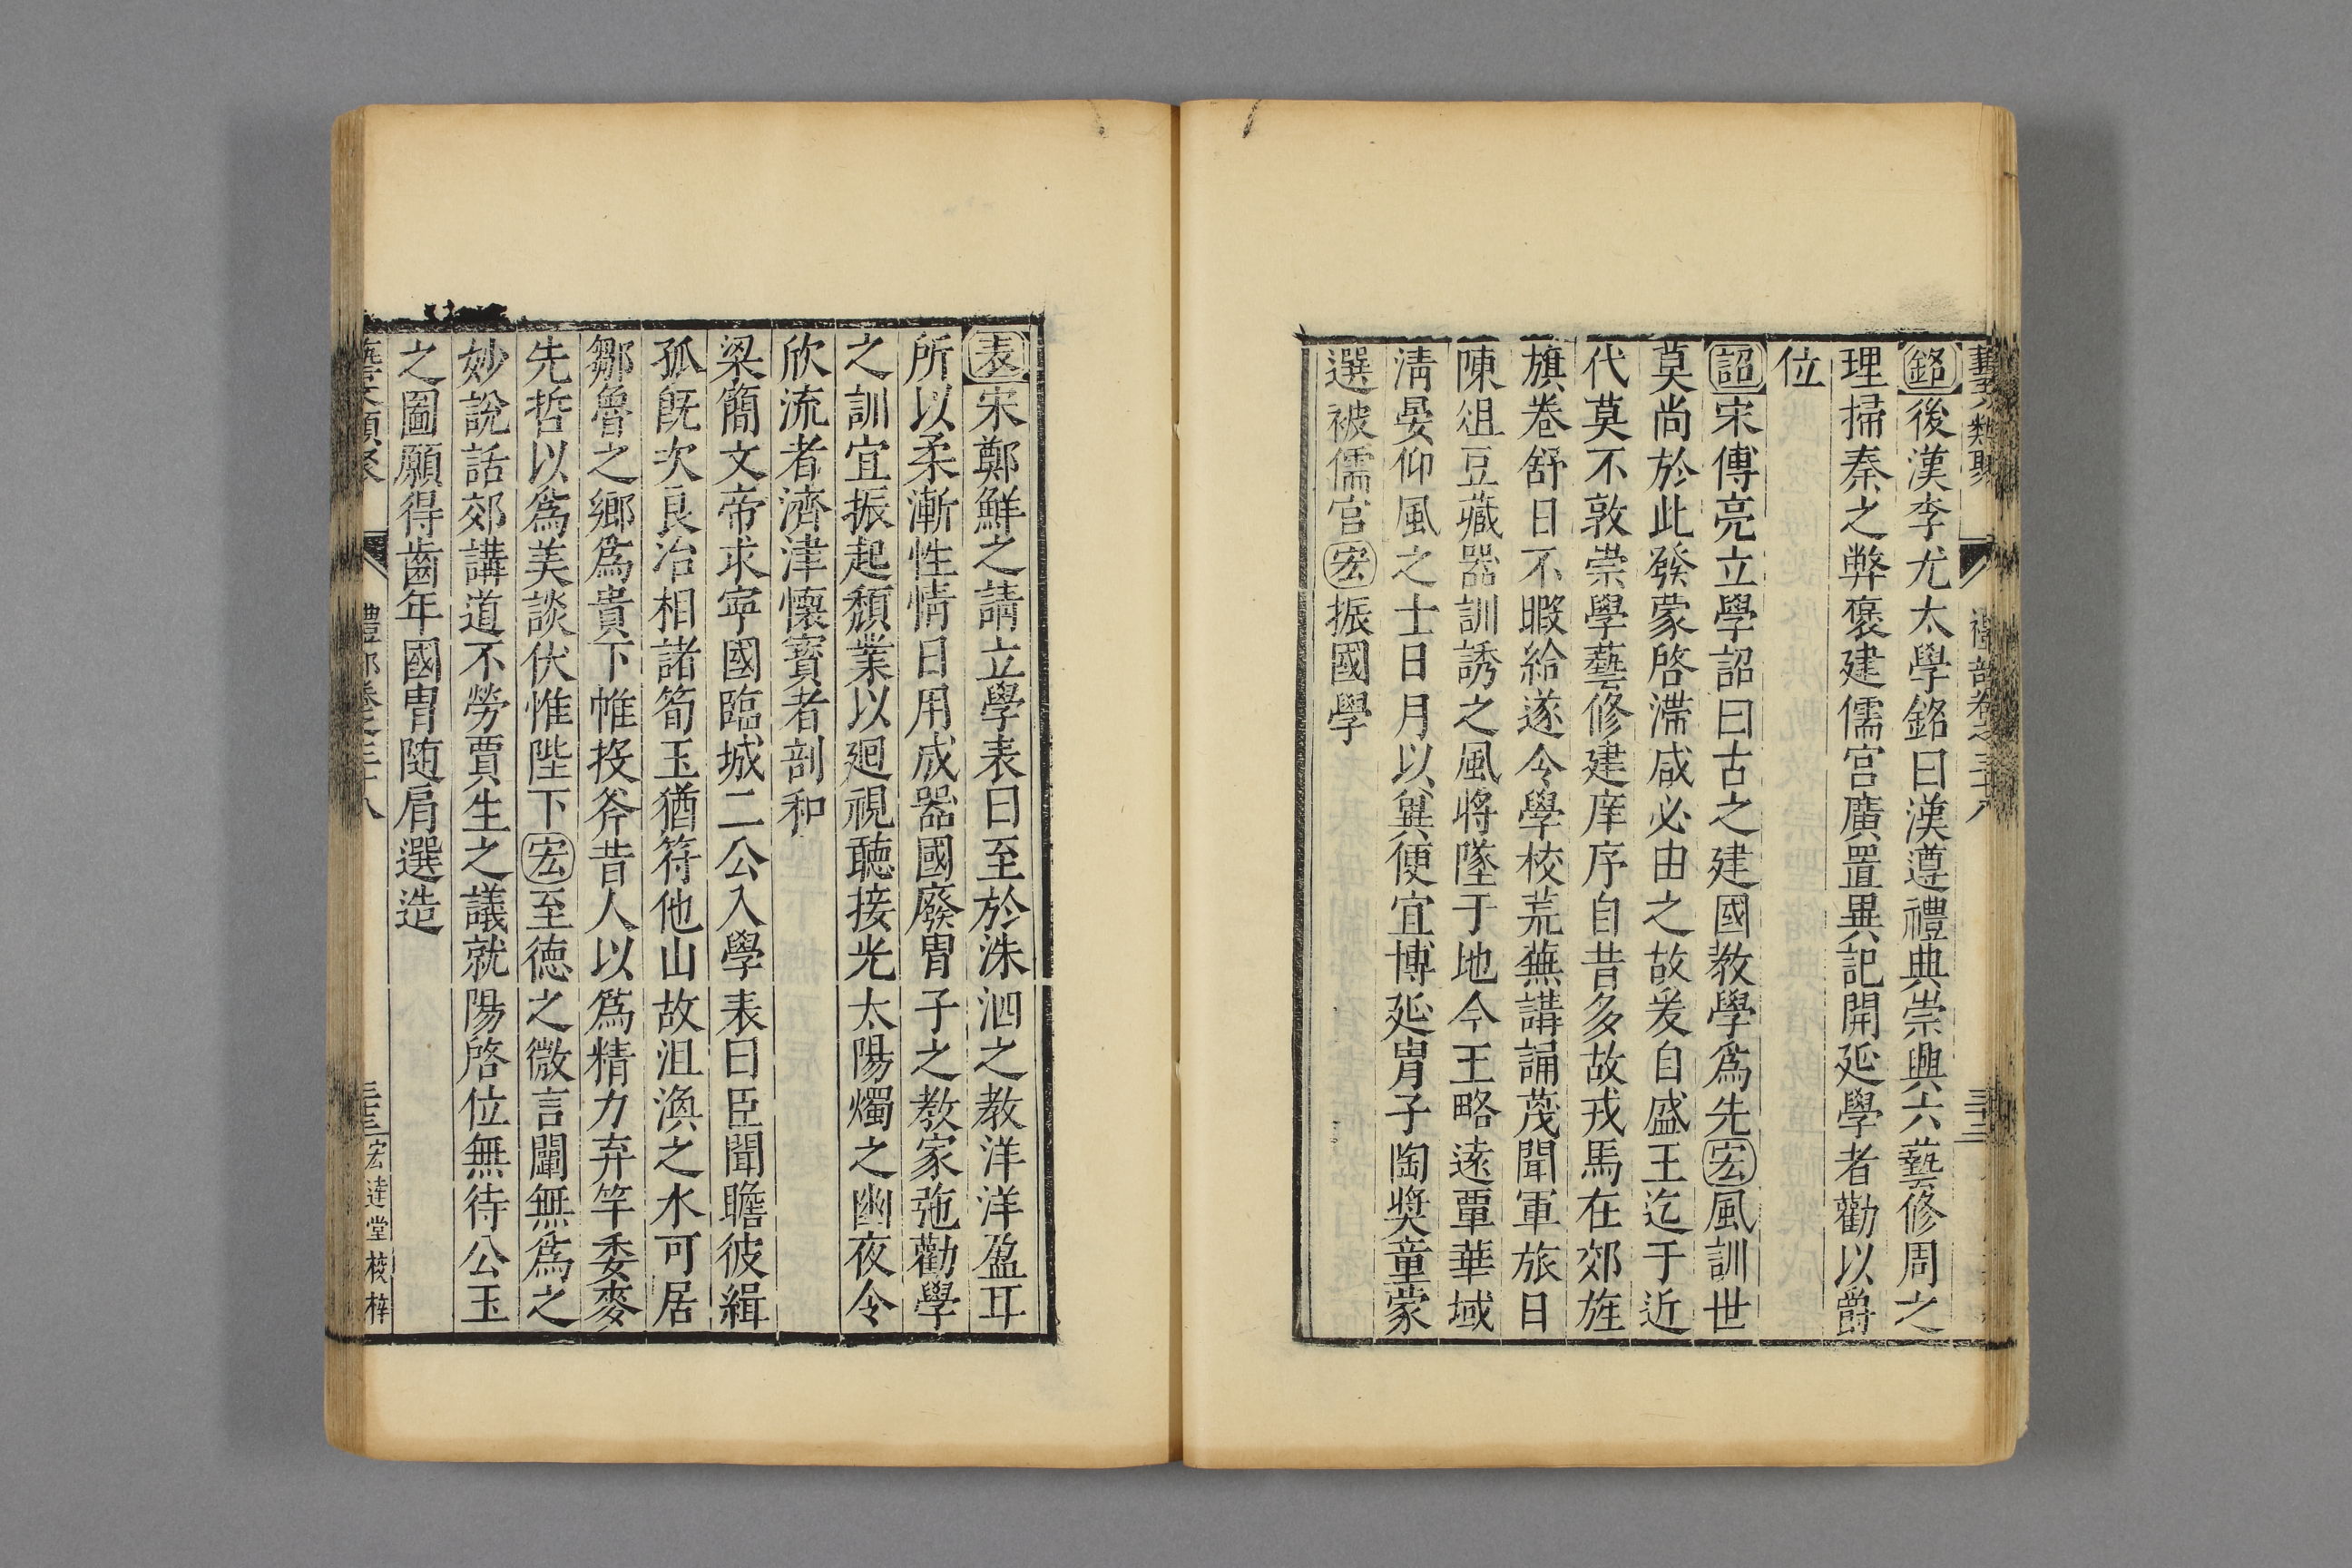 藝文類聚 禮部卷之三十八
銘後漢李尤太學銘曰漢遵禮典崇興六藝修周之
理掃秦之弊褒建儒宮廣置異記開延學者勸以爵
位
詔宋傅亮立學詔曰古之建國教學爲先宏風訓世
莫尚於此發蒙啓滯咸必由之故爰自盛王迄于近
代莫不敦崇學藝修建庠序自昔多故戎馬在郊旌
旗卷舒日不暇給遂令學校荒蕪講誦蔑聞軍旅日
陳俎豆藏器訓誘之風將墜于地今王略遠覃華域
淸晏仰風之士日月以冀便宜博延胄子陶奬童蒙
選被儒官宏振國學
表宋鄭鮮之請立學表曰至於洙泗之教洋洋盈耳
所以柔漸性情日用成器國廢胄子之教家弛勸學
之訓宜振起頽業以廻視聽接光太陽燭之幽夜令
欣流者濟津懷寳者剖和
梁簡文帝求寜國臨城二公入學表曰臣聞瞻彼緝
孤旣次良冶相諸筍玉猶符他山故沮渙之水可居
鄒魯之鄉爲貴下帷投斧昔人以爲精力弃竿委麥
先哲以爲美談伏惟陛下宏至徳之微言闡無爲之
妙說話郊講道不勞賈生之議就陽啓位無待公玉
之圖願得齒年國胄随肩選造
藝文類聚 禮部卷之三十八 宏達堂校梓